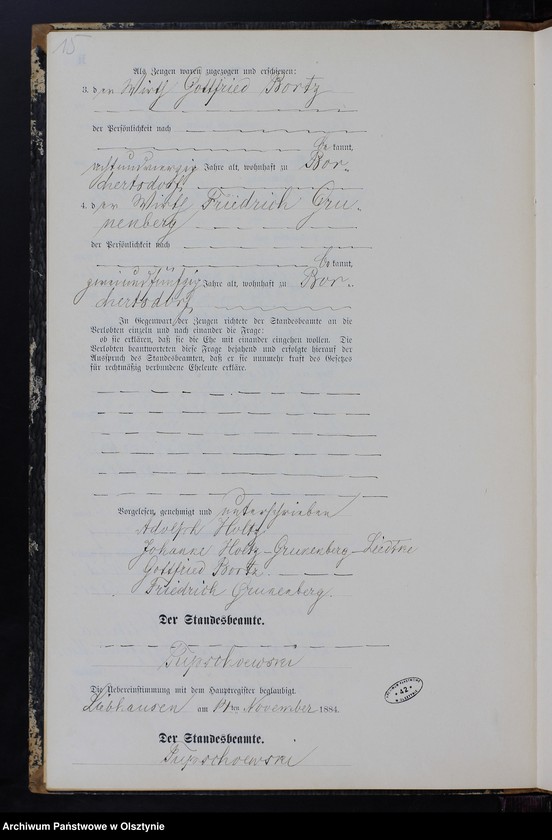 15
Als Zeugen waren zugezogen und erschienen:
3. den Wirth Gottfried Bortz
der Persönlichkeit nach
be kannt,
achtundvierzig Jahre alt, wohnhaft zu Bor-
chertsdorf
4. den Wirth Friedrich Gru-
nenberg
der Persönlichkeit nach
be kannt,
zweiundfünfzig Jahre alt, wohnhaft zu Bor-
chertsdorf
In Gegenwart der Zeugen richtete der Standesbeamte an die
Verlobten einzeln und nach einander die Frage:
ob sie erklären, daß sie die Ehe mit einander eingehen wollen. Die
Verlobten beantworteten diese Frage bejahend und erfolgte hierauf der
Ausspruch des Standesbeamten, daß er sie nunmehr kraft des Gesetzes
für rechtmäßig verbundene Eheleute erkläre.
Vorgelesen, genehmigt und unterschrieben
Adolph Holtz
Johanne Holtz-Grunenberg
Gottfried Bortz.
Friedrich Grunenberg.
Der Standesbeamte.
Die Uebereinstimmung mit dem Hauptregister beglaubigt.
am November 1884.
Der Standesbeamte.
42
Archiwum Państwowe w Olsztynie